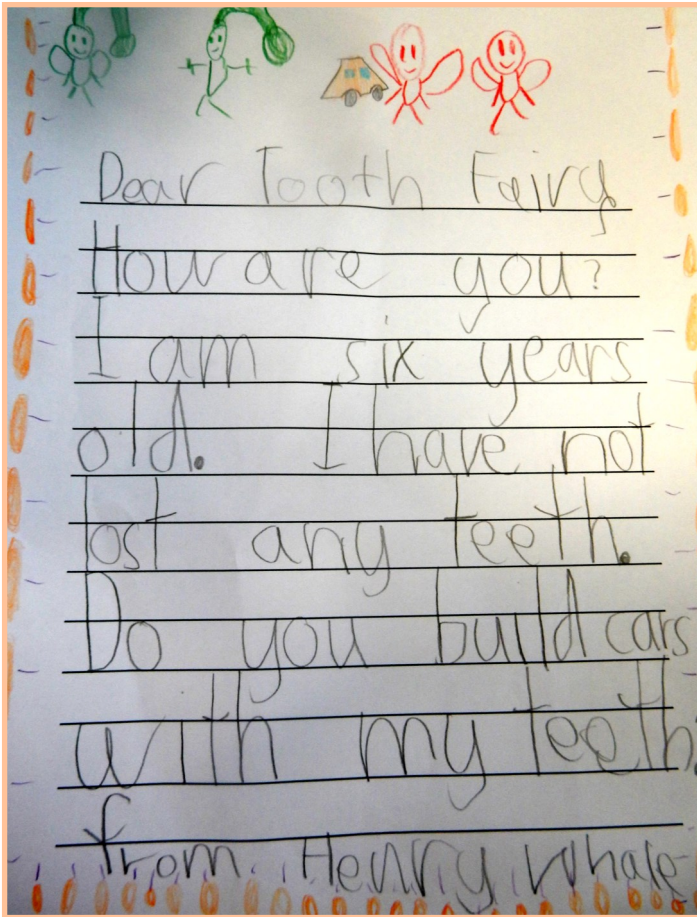 Dear Tooth Fairy
How are you?
I am six years
old. I have not
lost any teeth.
Do you build cars
with my teeth.
from Henry Whale